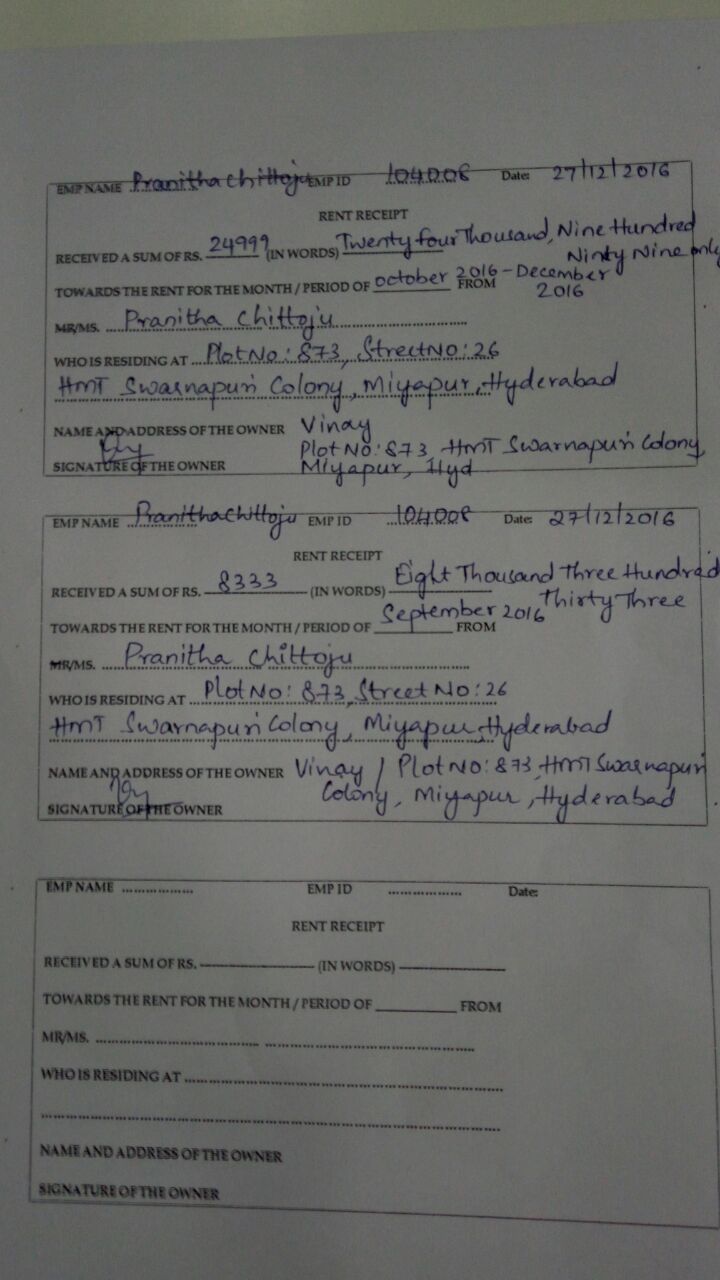 EMP NAME Pranitha Chittoju EMP ID 104008 Date: 27/12/2016
RENT RECEIPT
RECEIVED A SUM OF RS. 24999 (IN WORDS) Twenty four Thousand, Nine Hundred
Ninty Nine only
TOWARDS THE RENT FOR THE MONTH / PERIOD OF october 2016 - December FROM
2016
MR/MS. Pranitha Chittoju
WHO IS RESIDING AT Plot No: 873, Street No: 26
HMT Swarnapuri Colony, Miyapur, Hyderabad
NAME AND ADDRESS OF THE OWNER Vinay
Plot No: 873, HMT Swarnapuri Colony,
SIGNATURE OF THE OWNER Miyapur, Hyd
EMP NAME Pranitha Chittoju EMP ID 104008 Date: 27/12/2016
RENT RECEIPT
RECEIVED A SUM OF RS. 8333 (IN WORDS) Eight Thousand Three Hundred
Thirty Three
TOWARDS THE RENT FOR THE MONTH / PERIOD OF September 2016 FROM
MR/MS. Pranitha Chittoju
WHO IS RESIDING AT Plot No: 873, Street No: 26
HMT Swarnapuri Colony, Miyapur, Hyderabad
NAME AND ADDRESS OF THE OWNER Vinay / Plot No: 873, HMT Swarnapuri
Colony, Miyapur, Hyderabad
SIGNATURE OF THE OWNER
EMP NAME EMP ID Date:
RENT RECEIPT
RECEIVED A SUM OF RS. (IN WORDS)
TOWARDS THE RENT FOR THE MONTH / PERIOD OF FROM
MR/MS.
WHO IS RESIDING AT
NAME AND ADDRESS OF THE OWNER
SIGNATURE OF THE OWNER